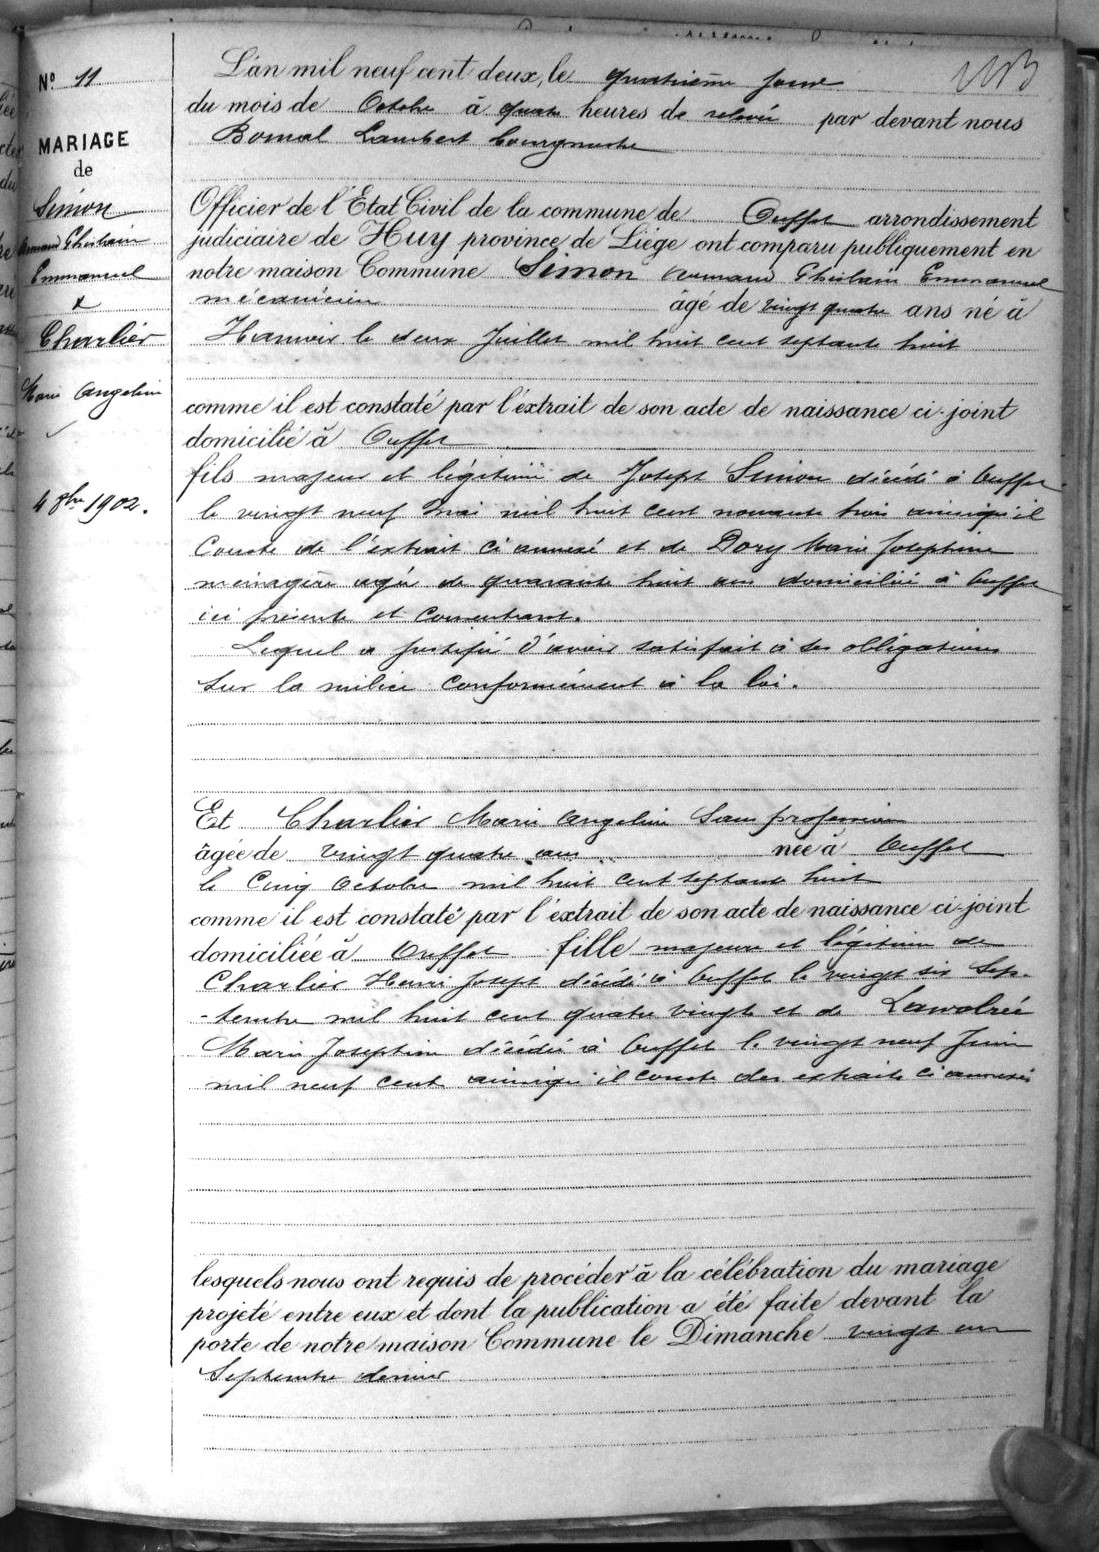 Nº 11
MARIAGE
de
Simon
Armand Ghislain
Emmanuel
x
Charlier
Marie Angeline
4 8bre 1902.
L'an mil neuf cent deux, le quatrième jour
du mois de Octobre à quatre heures de relevée par devant nous
Bomal Lambert bourgmestre
Officier de l'Etat Civil de la commune de Ouffet arrondissement
judiciaire de Huy province de Liège ont comparu publiquement en
notre maison Commune Simon Armand Ghislain Emmanuel
mécanicien âgé de vingt quatre ans né à
Hamoir le deux Juillet mil huit cent septante huit
comme il est constaté par l'extrait de son acte de naissance ci-joint
domicilié à Ouffet
fils majeur et légitime de Joseph Simon décédé à Ouffet
le vingt neuf Mai mil huit cent nonante trois ainsi qu'il
Conste de l'extrait ci annexé et de Dory Marie Josephine
ménagère agée de quarante huit ans domiciliée à Ouffet
ici présente et consentante.
Lequel a justifié d'avoir satisfait à ses obligations
sur la milice conformément à la loi.
Et Charlier Marie Angeline Sans profession
âgée de vingt quatre ans née à Ouffet
le Cinq Octobre mil huit cent septante huit
comme il est constaté par l'extrait de son acte de naissance ci-joint
domiciliée à Ouffet fille majeure et légitime de
Charlier Henri Joseph décédé à Ouffet le vingt six Sep-
-tembre mil huit cent quatre vingts et de Lawalrée
Marie Josephine décédée à Ouffet le vingt neuf Juin
mil neuf cent ainsi qu'il conste des extraits ci annexés
lesquels nous ont requis de procéder à la célébration du mariage
projeté entre eux et dont la publication a été faite devant la
porte de notre maison Commune le Dimanche vingt un
Septembre dernier